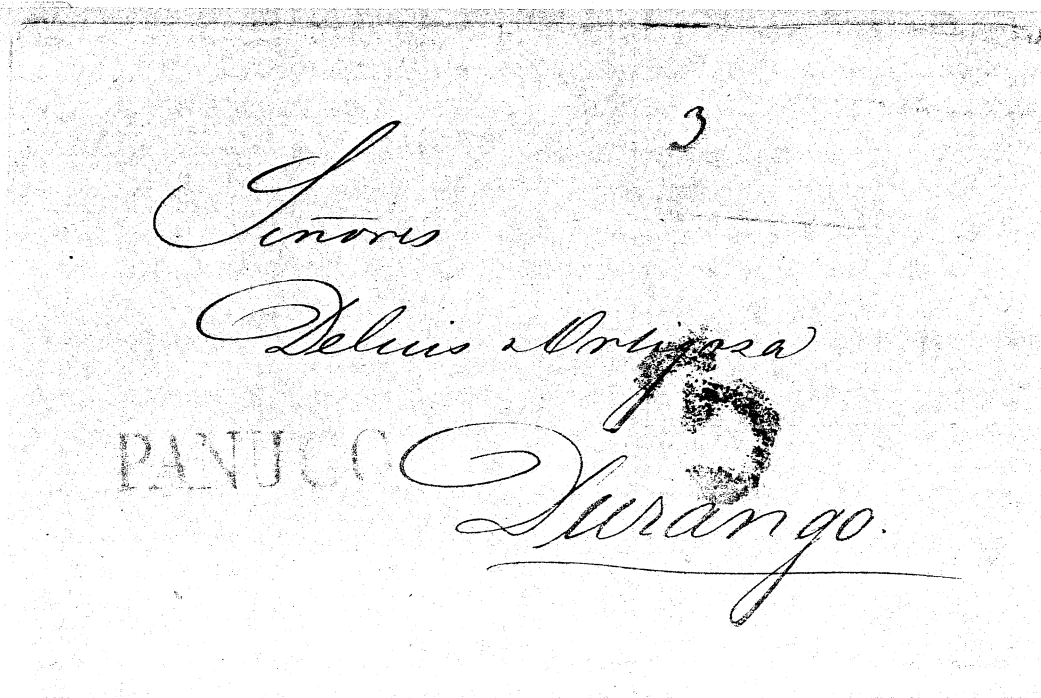 3
Señores
Deluis Ortigosa
PANUCO
Durango.